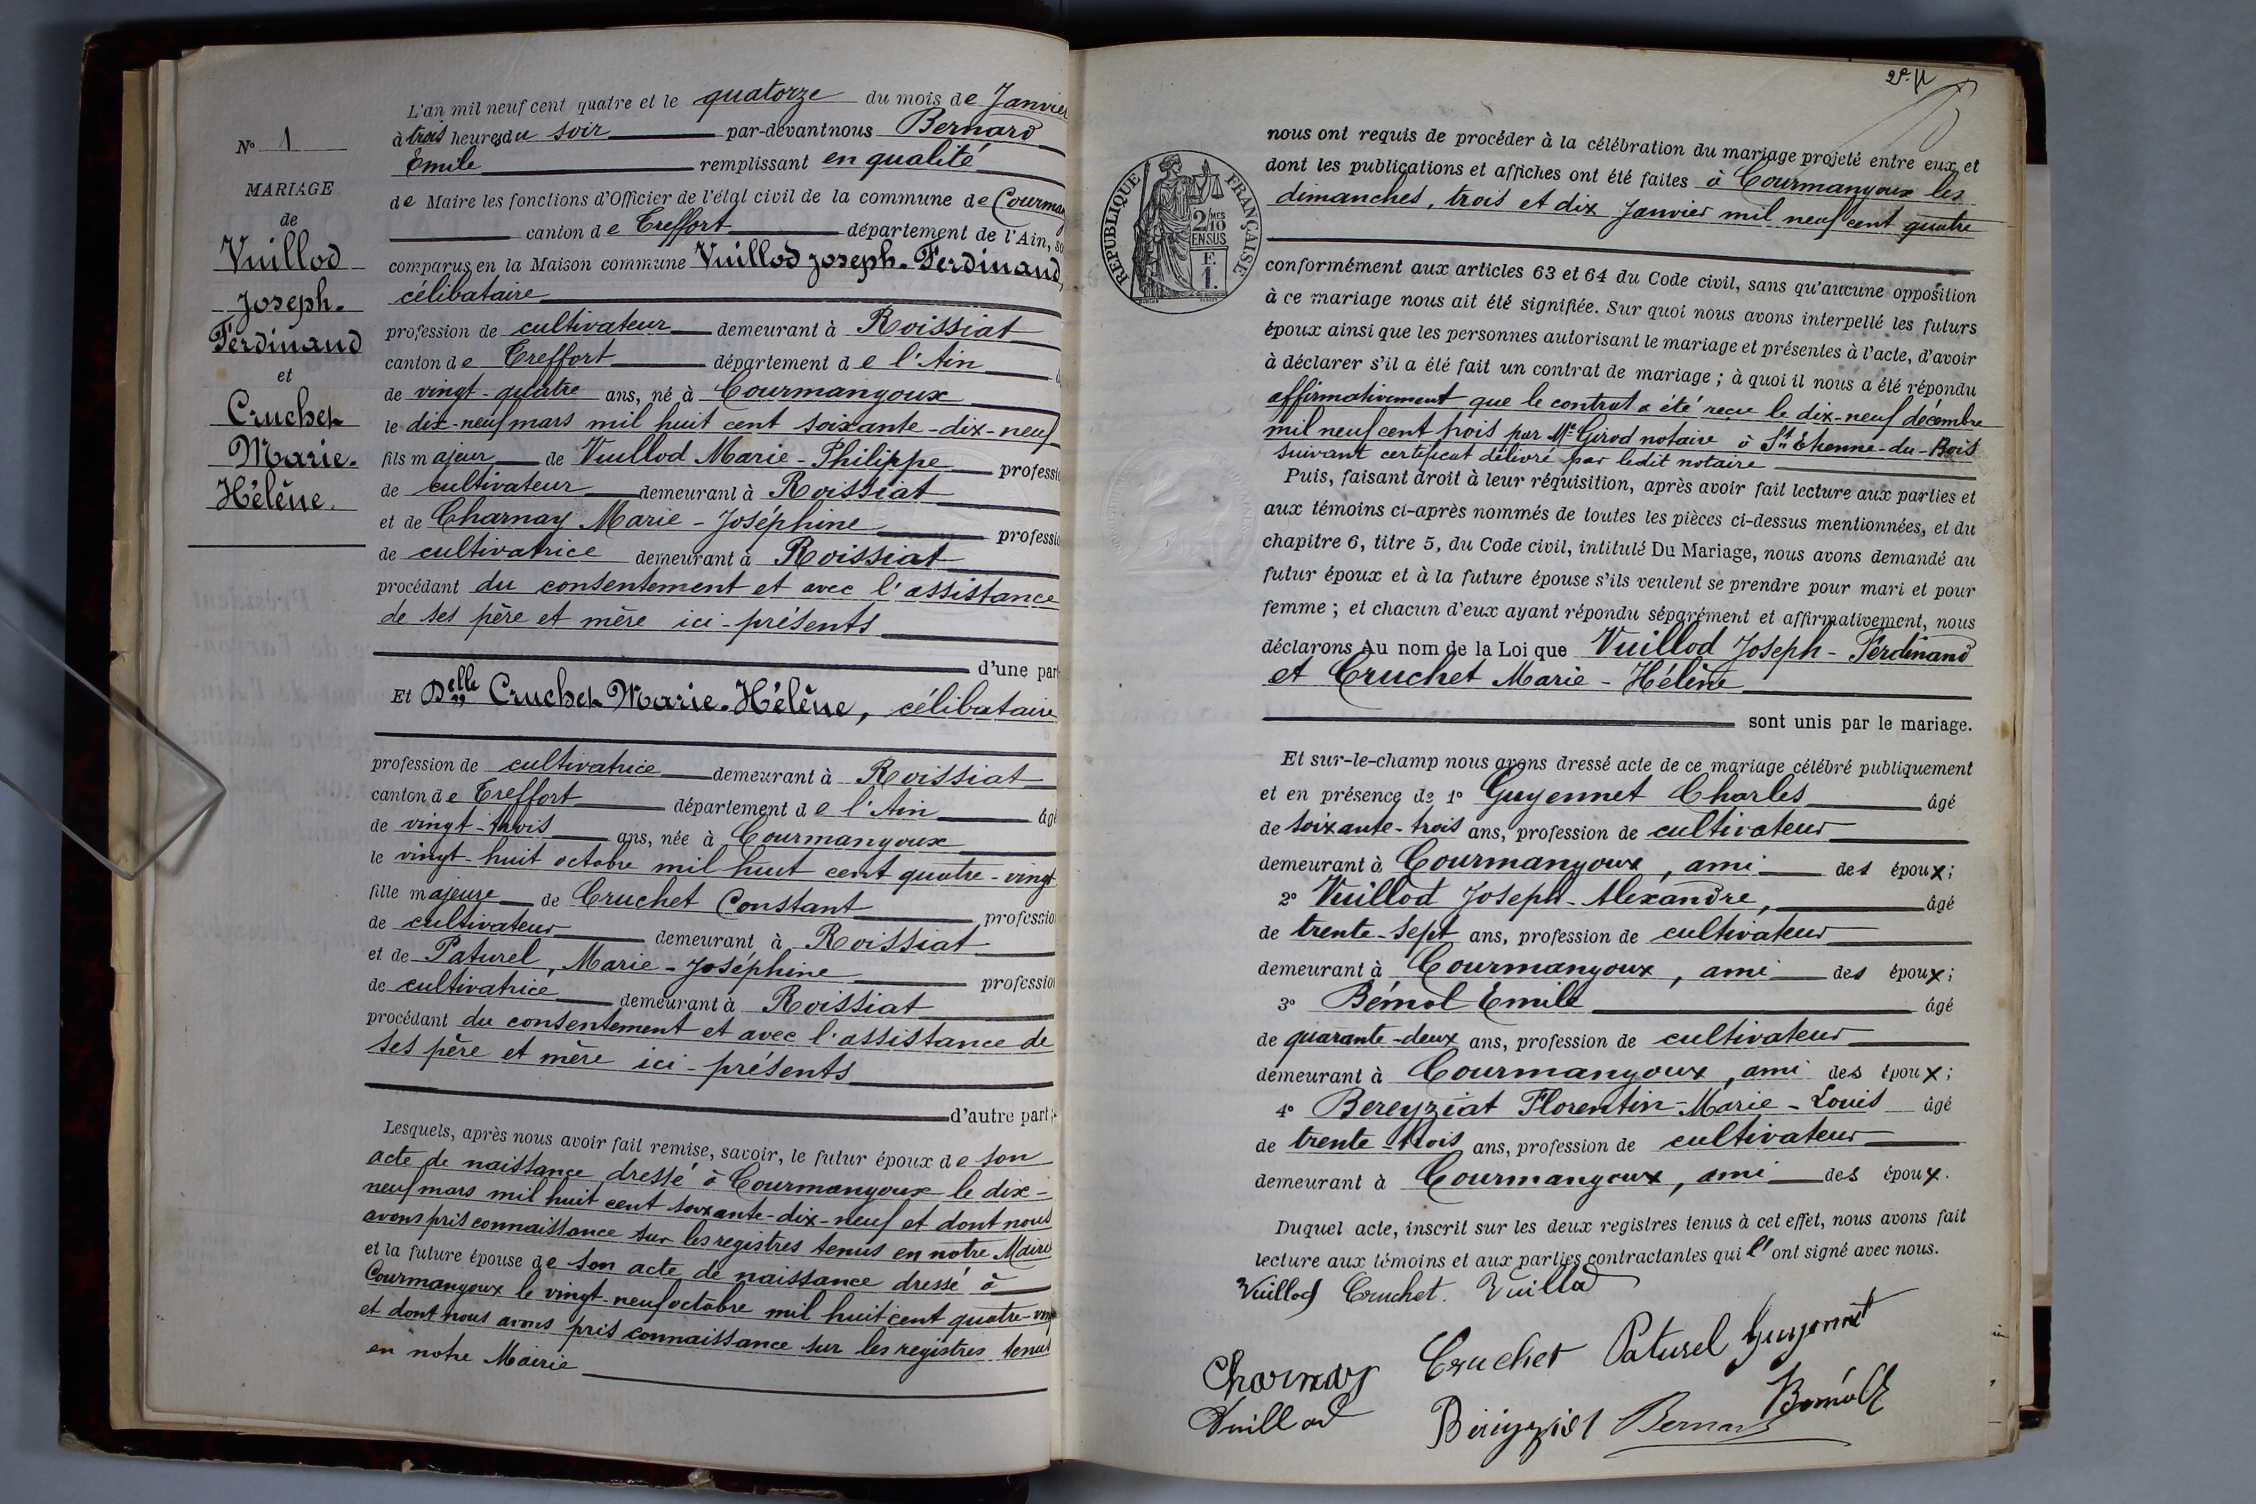 N° 1
MARIAGE
de
Vuillod
Joseph-
Ferdinand
et
Cruchet
Marie-
Hélène.
L'an mil neuf cent quatre et le quatorze du mois de Janvier
à trois heures du soir par-devant nous Bernard
Emile remplissant en qualité
de Maire les fonctions d'Officier de l'état civil de la commune de Courman
canton de Treffort département de l'Ain, so
comparus en la Maison commune Vuillod Joseph-Ferdinand,
célibataire
profession de cultivateur demeurant à Roissiat
canton de Treffort département de l'Ain
de vingt-quatre ans, né à Courmangoux
le dix-neuf mars mil huit cent soixante-dix-neuf
fils majeur de Vuillod Marie-Philippe professio
de cultivateur demeurant à Roissiat
et de Charnay Marie-Joséphine professio
de cultivatrice demeurant à Roissiat
procédant du consentement et avec l'assistance
de ses père et mère ici-présents
d'une part
Et Delle Cruchet Marie-Hélène, célibataire
profession de cultivatrice demeurant à Roissiat
canton de Treffort département de l'Ain âgé
de vingt-trois ans, née à Courmangoux
le vingt-huit octobre mil huit cent quatre-vingt
fille majeure de Cruchet Constant profession
de cultivateur demeurant à Roissiat
et de Paturel, Marie-Joséphine profession
de cultivatrice demeurant à Roissiat
procédant du consentement et avec l'assistance de
ses père et mère ici-présents
d'autre part
Lesquels, après nous avoir fait remise, savoir, le futur époux de son
acte de naissance dressé à Courmangoux le dix-
neuf mars mil huit cent soixante-dix-neuf et dont nous
avons pris connaissance sur les registres tenus en notre Mairie
et la future épouse de son acte de naissance dressé à
Courmangoux le vingt-neuf octobre mil huit cent quatre-vingt
et dont nous avons pris connaissance sur les registres tenus
en notre Mairie
RÉPUBLIQUE FRANÇAISE
2/10 MES
EN SUS
F.
1.
nous ont requis de procéder à la célébration du mariage projeté entre eux et
dont les publications et affiches ont été faites à Courmangoux les
dimanches, trois et dix Janvier mil neuf cent quatre
conformément aux articles 63 et 64 du Code civil, sans qu'aucune opposition
à ce mariage nous ait été signifiée. Sur quoi nous avons interpellé les futurs
époux ainsi que les personnes autorisant le mariage et présentes à l'acte, d'avoir
à déclarer s'il a été fait un contrat de mariage ; à quoi il nous a été répondu
affirmativement que le contrat a été reçu le dix-neuf décembre
mil neuf cent trois par Me Girod notaire à St Etienne-du-Bois
suivant certificat délivré par ledit notaire
Puis, faisant droit à leur réquisition, après avoir fait lecture aux parties et
aux témoins ci-après nommés de toutes les pièces ci-dessus mentionnées, et du
chapitre 6, titre 5, du Code civil, intitulé Du Mariage, nous avons demandé au
futur époux et à la future épouse s'ils veulent se prendre pour mari et pour
femme ; et chacun d'eux ayant répondu séparément et affirmativement, nous
déclarons Au nom de la Loi que Vuillod Joseph-Ferdinand
et Cruchet Marie-Hélène
sont unis par le mariage.
Et sur-le-champ nous avons dressé acte de ce mariage célébré publiquement
et en présence de 1° Guyennet Charles âgé
de soixante-trois ans, profession de cultivateur
demeurant à Courmangoux, ami des époux;
2° Vuillod Joseph-Alexandre, âgé
de trente-sept ans, profession de cultivateur
demeurant à Courmangoux, ami des époux;
3° Bémol Emile âgé
de quarante-deux ans, profession de cultivateur
demeurant à Courmangoux, ami des époux;
4° Bereyziat Florentin-Marie-Louis âgé
de trente-trois ans, profession de cultivateur
demeurant à Courmangoux, ami des époux.
Duquel acte, inscrit sur les deux registres tenus à cet effet, nous avons fait
lecture aux témoins et aux parties contractantes qui l'ont signé avec nous.
Vuillod Cruchet. Vuillod
Charnay Cruchet Paturel Guyennet
Vuillod Béreyziat Bernard Bémol E